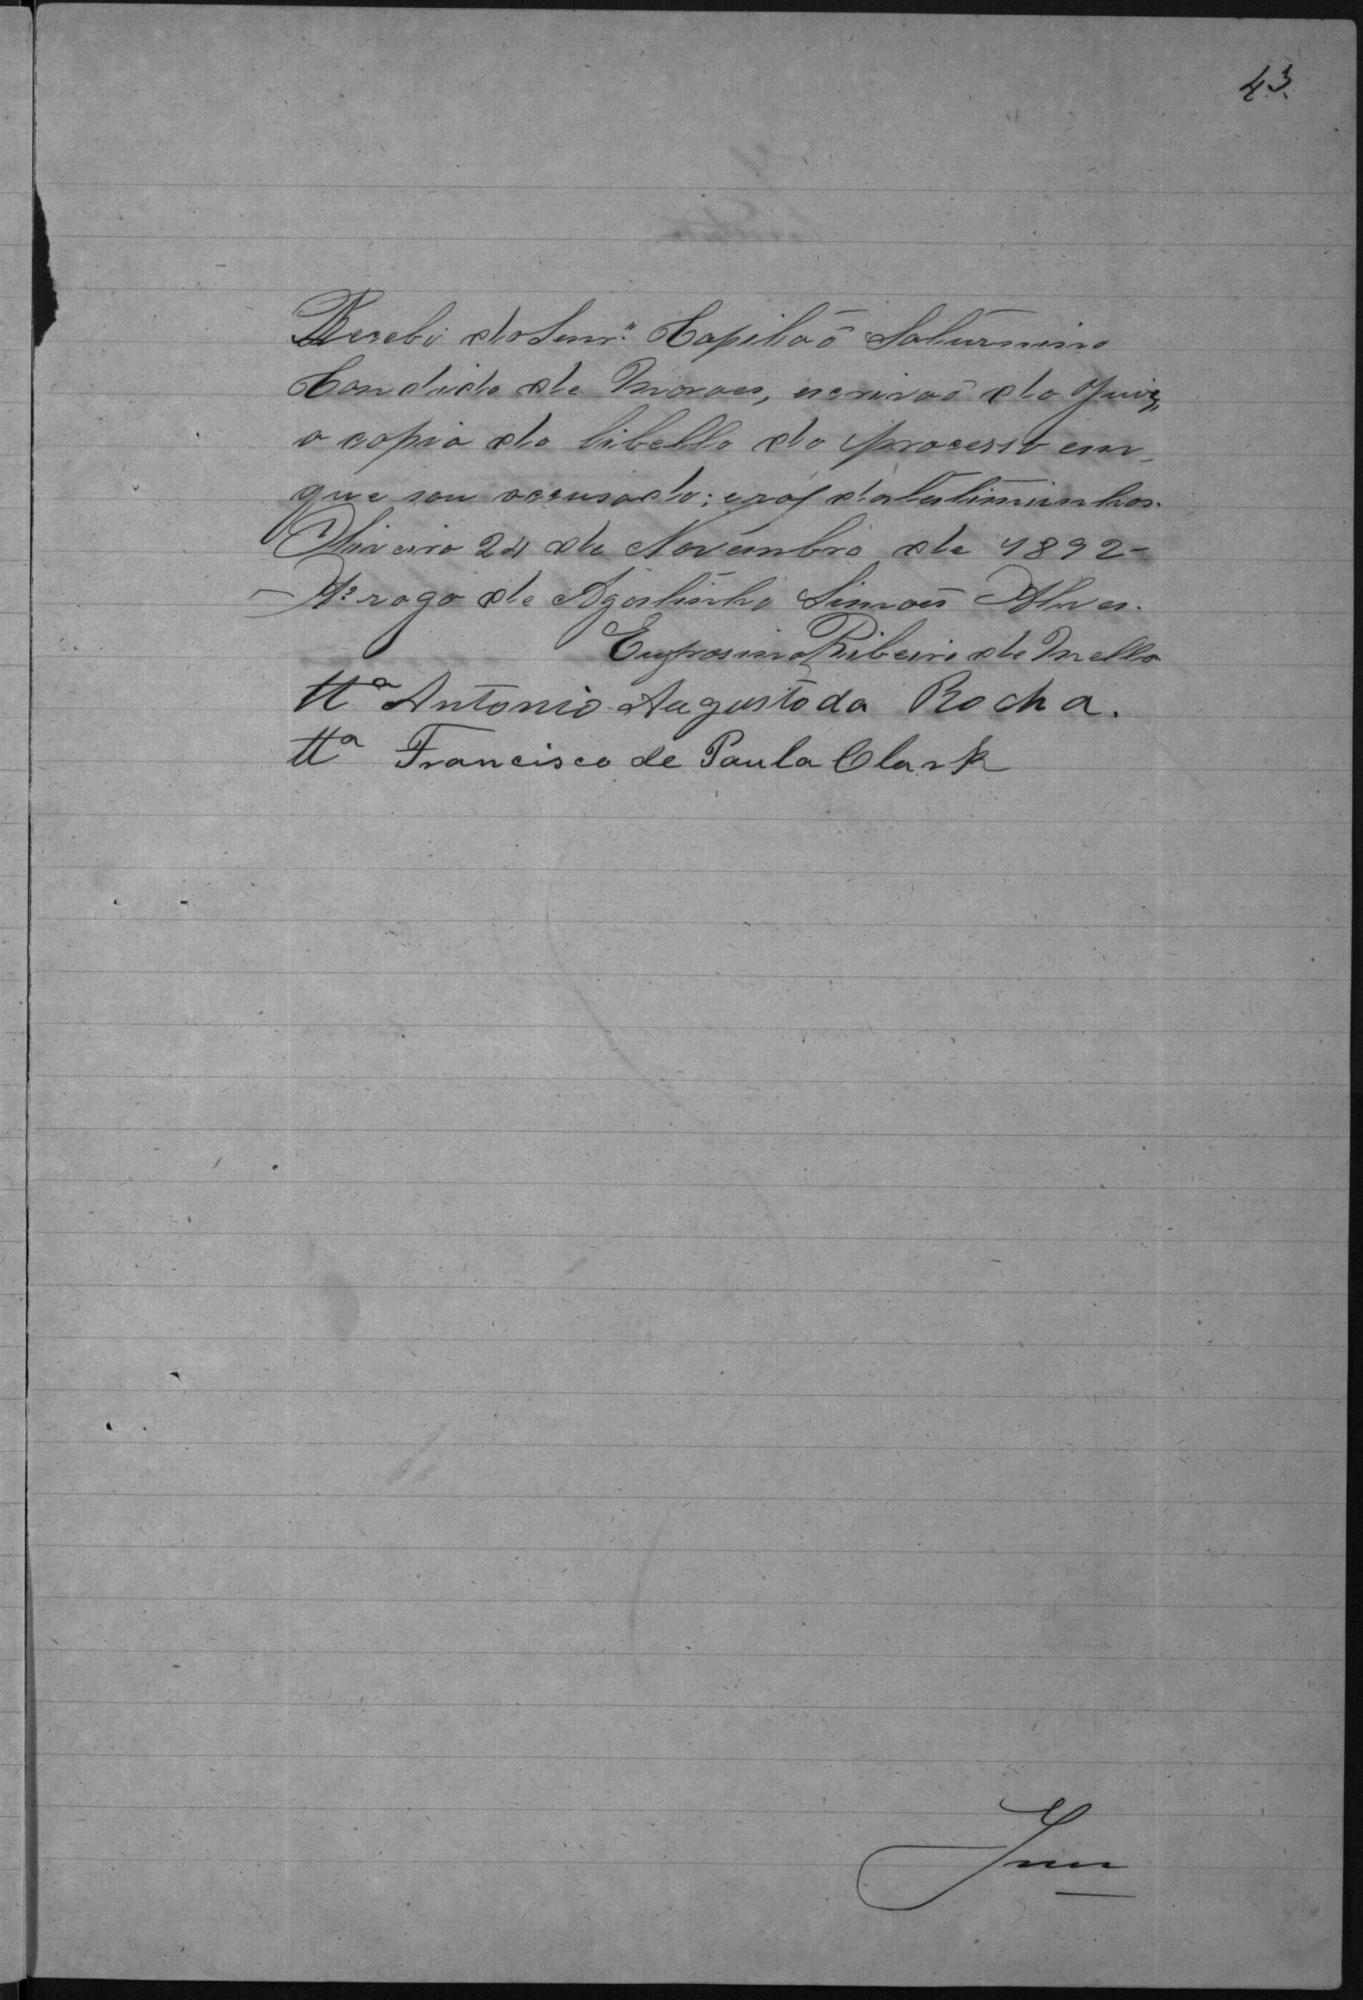 43.
Recebi do Senr.º Capitaõ Saturnino
Candido de Moraes, escrivaõ do Jury,
a copia do libello do processo em
que sou accusado; e rol das testimunhas.
Oliveira 24 de Novembro de 1892-
A rogo de Agostinho Simões Alves.
Ribeiro de Mello
ttª Antonio Augusto da Rocha.
ttª Francisco de Paula Clark